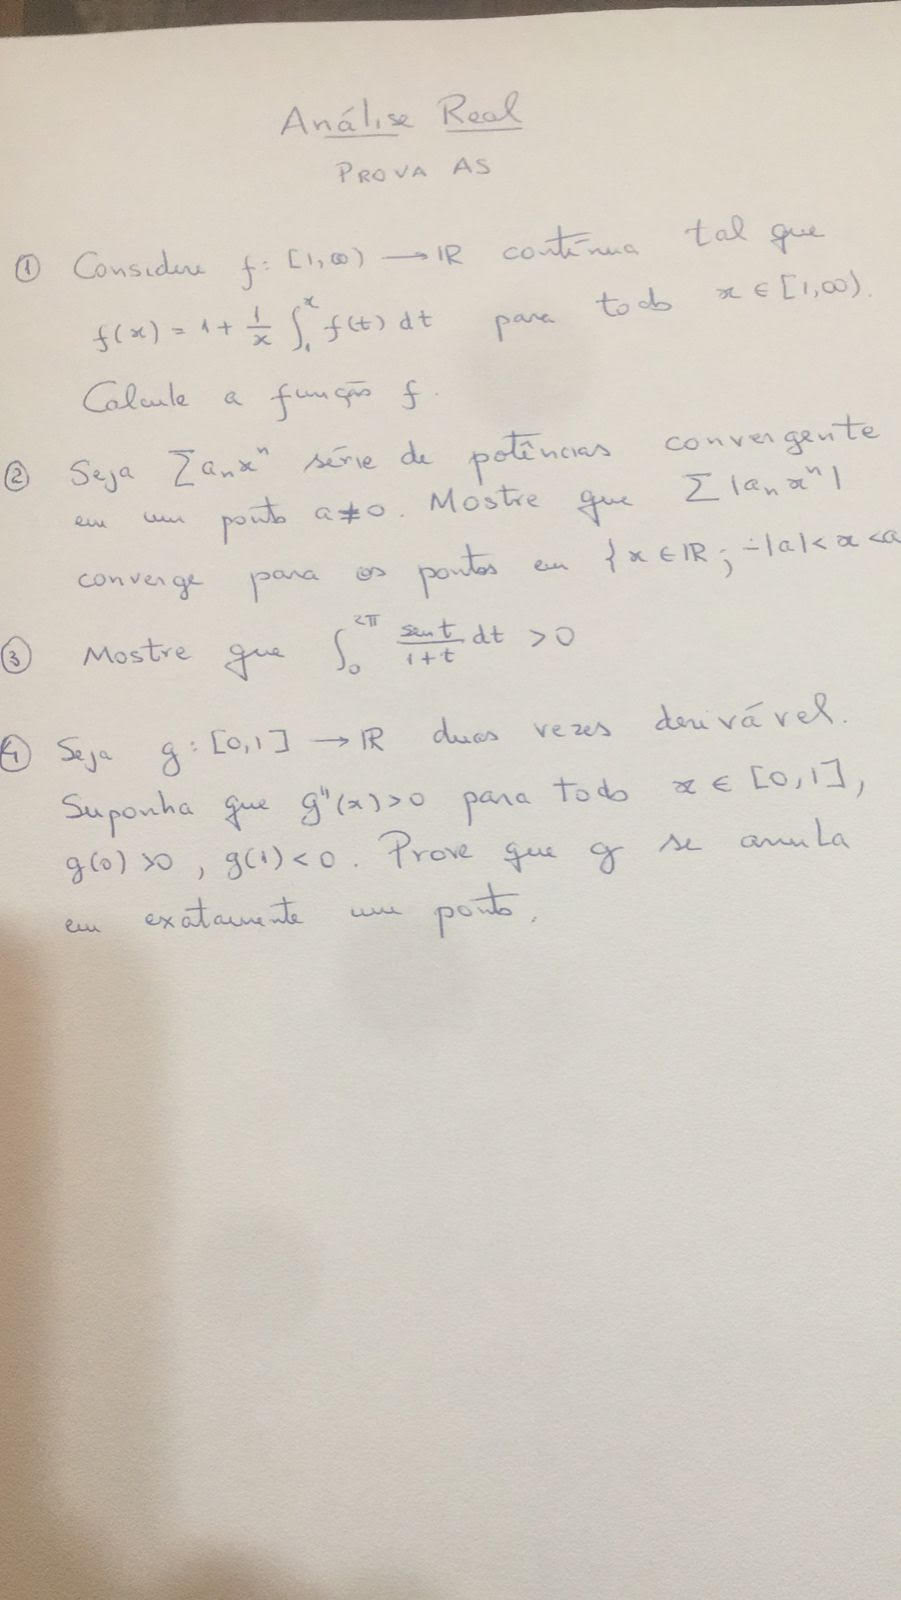 Análise Real
PROVA AS
① Considere f: [1,∞) → ℝ contínua tal que
f(x) = 1 + 1/x ∫₁ˣ f(t) dt para todo x ∈ [1,∞).
Calcule a função f.
② Seja Σ aₙxⁿ série de potências convergente
em um ponto a≠0. Mostre que Σ |aₙ xⁿ|
converge para os pontos em {x ∈ ℝ; -|a| < x < a
③ Mostre que ∫₀²π sen t/1+t dt > 0
④ Seja g: [0,1] → ℝ duas vezes derivável.
Suponha que g''(x)>0 para todo x ∈ [0,1],
g(0) >0, g(1) < 0. Prove que g se anula
em exatamente um ponto.